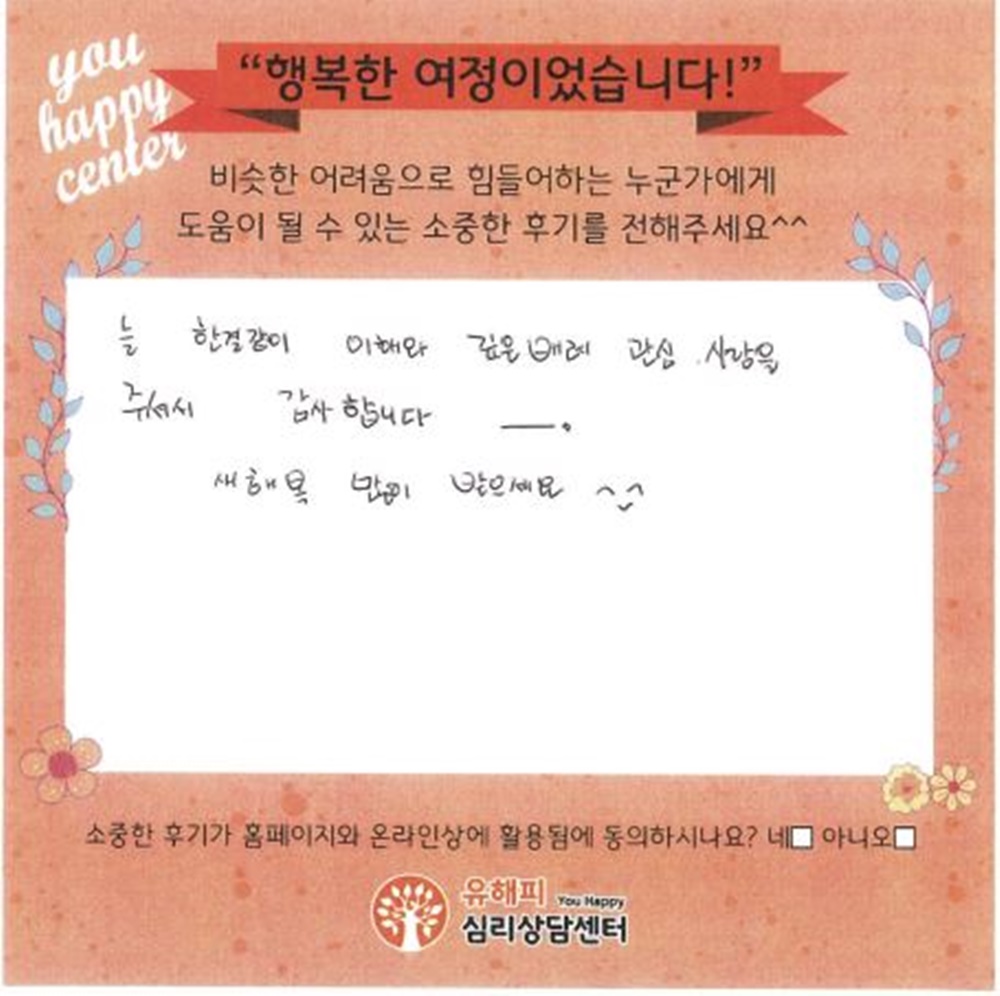 you
happy
center
“행복한 여정이었습니다!”
비슷한 어려움으로 힘들어하는 누군가에게
도움이 될 수 있는 소중한 후기를 전해주세요^^
늘 한결같이 이해와 깊은 배려 관심 사랑을
주셔서 감사합니다 ㅡ.
새해 복 많이 받으세요 ^^
소중한 후기가 홈페이지와 온라인상에 활용됨에 동의하시나요? 네□ 아니오□
유해피 You Happy
심리상담센터